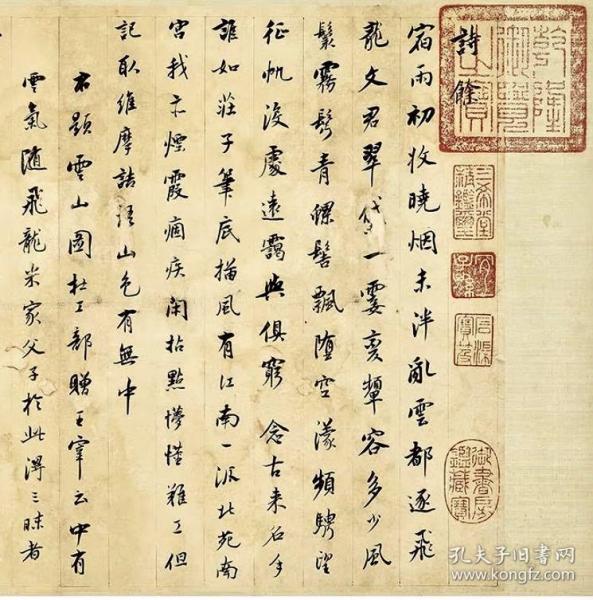 詩餘
宿雨初收曉烟未泮亂雲都逐飛
龍文君翠黛一霎變顰容多少風
鬟霧鬢青螺髻飄墮空濛頻騁望
征帆沒處遠靄與俱窮 念古来名手
誰如莊子筆底描風有江南一派北苑南
宮我亦煙霞痼疾閑拈點懞懂難工但
記取維摩詰語山色有無中
右題雲山圖杜工部贈王宰云中有
雲氣随飛龍米家父子於此得三昧者
乾隆御覽之寶
三希堂精鑑璽
宜子孫
石渠寶笈
御書房鑑藏寶
孔夫子旧书网
www.kongfz.com